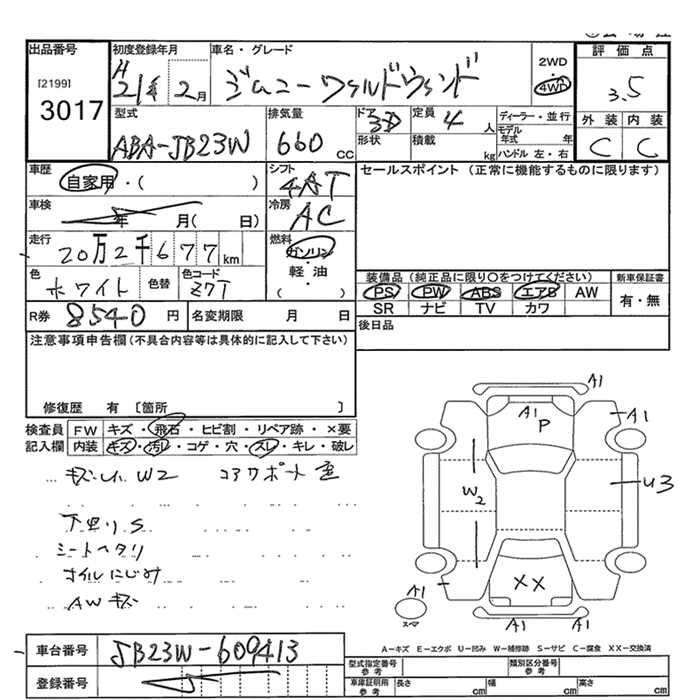 出品番号
[2199]
3017
初度登録年月
H21年 2月
車名・グレード
ジムニー ワイルドウィンド
2WD
4WD
評価点
3.5
外装 内装
C C
型式
ABA-JB23W
排気量
660 cc
ドア 3D
形状
定員 4 人
積載 kg
ディーラー・並行
モデル年式 年
ハンドル 左・右
車歴
自家用・( )
シフト
4AT
車検
年 月( 日)
冷房
AC
走行
20万2千677km
燃料
ガソリン・軽油
( )
色
ホワイト
色替
色コード
Z7T
R券 8540 円
名変期限 月 日
セールスポイント(正常に機能するものに限ります)
装備品(純正品に限り〇をつけてください)
PS PW ABS エアB AW
SR ナビ TV カワ
新車保証書
有・無
後日品
注意事項申告欄(不具合内容等は具体的に記入して下さい)
修復歴 有 〔箇所 〕
検査員記入欄
FW キズ・飛石・ヒビ割・リペア跡・×要
内装 キズ・汚レ・コゲ・穴・スレ・キレ・破レ
W2 コアサポート
下廻りS
シートヘタリ
オイルにじみ
AWキズ
A1
A1 P
A1
W2
U3
XX
A1
A1 A1
スペア
A-キズ E-エクボ U-凹み W-補修跡 S-サビ C-腐食 XX-交換済
車台番号 JB23W-609413
登録番号
型式指定番号 参考
類別区分番号 参考
車庫証明用 参考
長さ cm 幅 cm 高さ cm